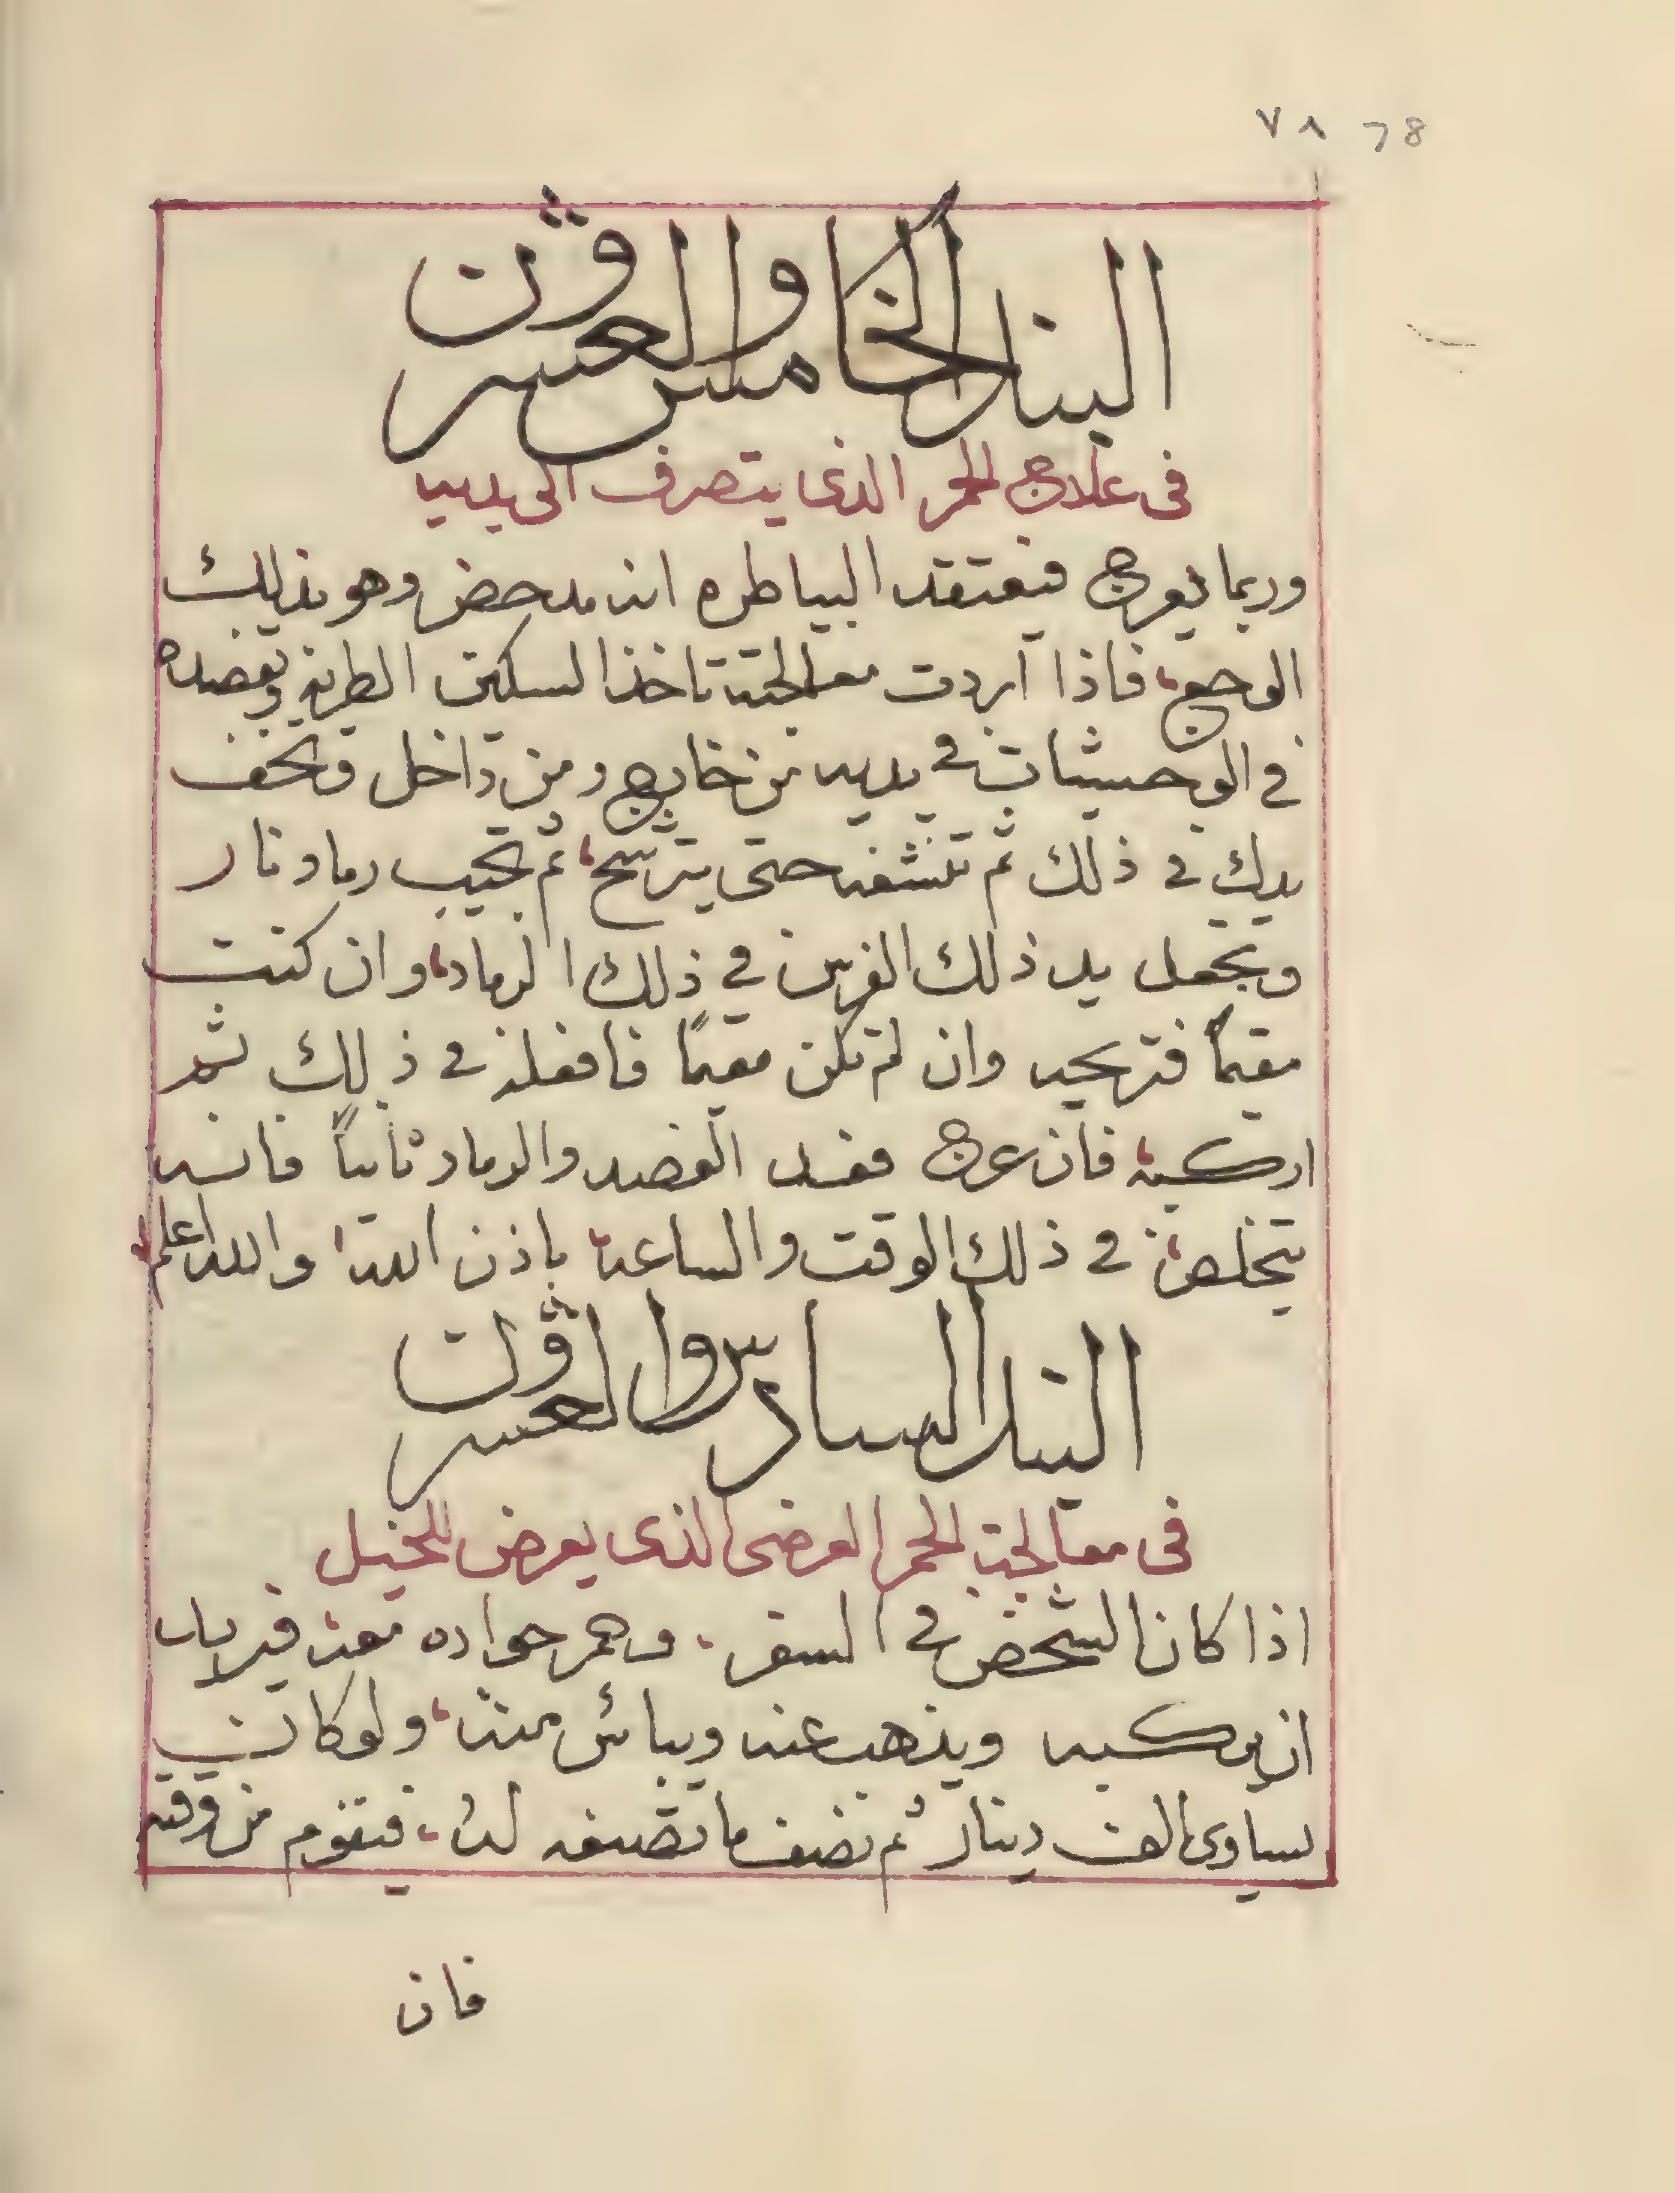 ٧٨ 78
البند الخامس والعشرون
فى علاج الحمر الذى يتصرف الى يديه
وربما يعرج فيعتقد البياطره انه ملحض وهو بذلك
الوجع، فاذا اردت معالجته تاخذ السكين الطريه وتفصده
في الوحشيات في يديه من خارج ومن داخل وتخف
يدك في ذلك ثم تنشفه حتى يترشح، ثم تجيب رماد نار
وتجعل يد ذلك الفرس في ذلك الرماد، وان كنت
مقيماً فتريحه وان لم تكن مقيماً فافعله في ذلك ثم
اركبه، فان عرج فعد الفصد والرماد ثانياً فانه
يتخلص، في ذلك الوقت والساعة باذن الله والله اعلم
البند السادس والعشرون
فى معالجة الحمر العرضى الذى يعرض للخيل
اذا كان الشخص في السفر، وحمر جواده معه، فيريد
ان يركبه ويذهب عنه ويبائس منه، ولو كان
يساوى الف دينار ثم نصف ما تصفه له، فيقوم من وقته
فان